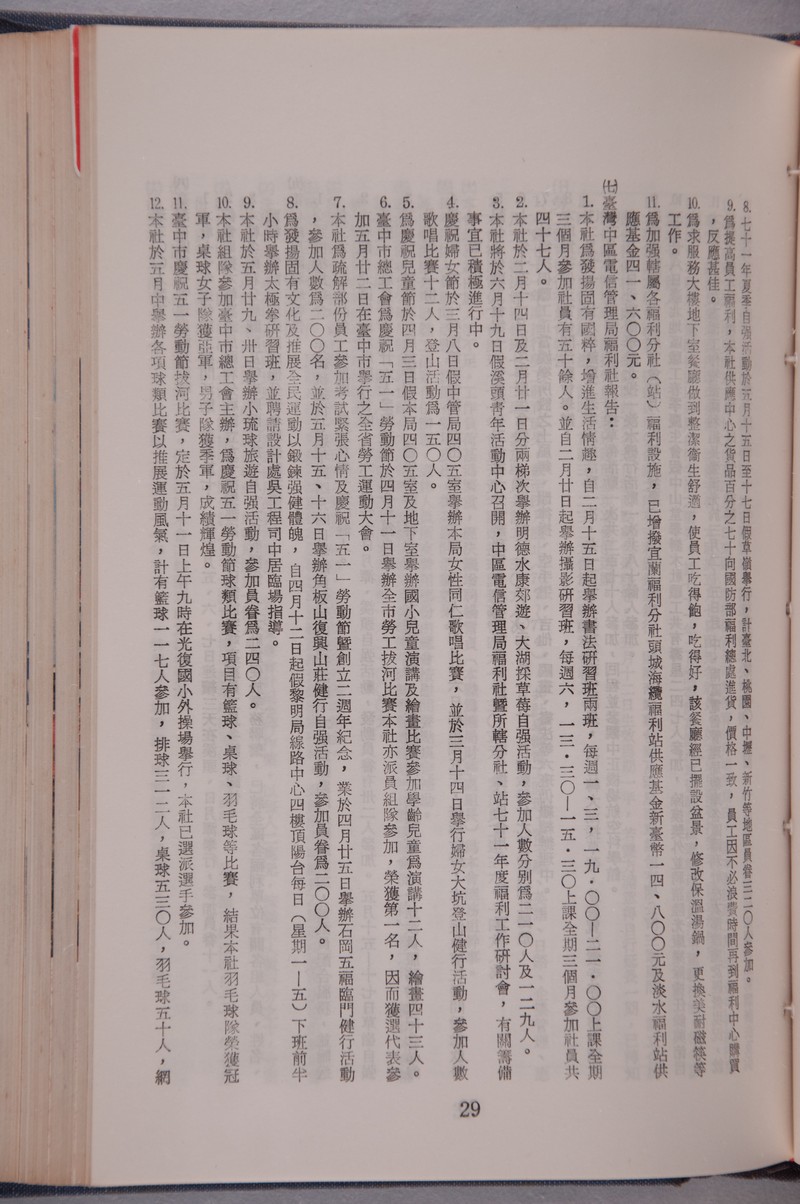 8.七十一年夏季自强活動於五月十五日至十七日假草嶺舉行，計臺北、桃園、中壢、新竹等地區員眷三二〇人參加。
9.爲提高員工福利，本社供應中心之貨品百分之七十向國防部福利總處進貨，價格一致，員工因不必浪費時間再到福利中心購買
，反應甚佳。
10.爲求服務大樓地下室餐廳做到整潔衛生舒適，使員工吃得飽，吃得好，該餐廳經已擺設盆景，修改保溫湯鍋，更換美耐磁筷等
工作。
11.爲加强轄屬各福利分社（站）福利設施，已增撥宜蘭福利分社頭城海纜福利站供應基金新臺幣一四、八〇〇元及淡水福利站供
應基金四一、六〇〇元。
㈦臺灣中區電信管理局福利社報告：
1.本社爲發揚固有國粹，增進生活情趣，自二月十五日起舉辦書法研習班兩班，每週一、三，一九·〇〇—二一·〇〇上課全期
三個月參加社員有五十餘人。並自二月廿日起舉辦攝影研習班，每週六，一三·三〇—一五·三〇上課全期三個月參加社員共
四十七人。
2.本社於二月十四日及二月廿一日分兩梯次舉辦明德水庫郊遊、大湖採草莓自强活動，參加人數分别爲二一〇人及一二九人。
3.本社將於六月十九日假溪頭青年活動中心召開，中區電信管理局福利社暨所轄分社、站七十一年度福利工作研討會，有關籌備
事宜已積極進行中。
4.慶祝婦女節於三月八日假中管局四〇五室舉辦本局女性同仁歌唱比賽，並於三月十四日舉行婦女大坑登山健行活動，參加人數
歌唱比賽十二人，登山活動爲一五〇人。
5.爲慶祝兒童節於四月三日假本局四〇五室及地下室舉辦國小兒童演講及繪畫比賽參加學齡兒童爲演講十二人，繪畫四十三人。
6.臺中市總工會爲慶祝「五一」勞動節於四月十一日舉辦全市勞工拔河比賽本社亦派員組隊參加，榮獲第一名，因而獲選代表參
加五月廿二日在臺中市舉行之全省勞工運動大會。
7.本社爲疏解部份員工參加考試緊張心情及慶祝「五一」勞動節暨創立二週年紀念，業於四月廿五日舉辦石岡五福臨門健行活動
，參加人數爲二〇〇名，並於五月十五、十六日舉辦角板山復興山莊健行自强活動，參加員眷爲二〇〇人。
8.爲發揚固有文化及推展全民運動以鍛鍊强健體魄，自四月十二日起假黎明局線路中心四樓頂陽台每日（星期一—五）下班前半
小時舉辦太極拳研習班，並聘請設計處吳工程司中居臨場指導。
9.本社於五月廿九、卅日舉辦小琉球旅遊自强活動，參加員眷爲二四〇人。
10.本社組隊參加臺中市總工會主辦，爲慶祝五一勞動節球類比賽，項目有籃球、桌球、羽毛球等比賽，結果本社羽毛球隊榮獲冠
軍，桌球女子隊獲亞軍，男子隊獲季軍，成績輝煌。
11.臺中市慶祝五一勞動節拔河比賽，定於五月十一日上午九時在光復國小外操場舉行，本社已選派選手參加。
12.本社於五月中舉辦各項球類比賽以推展運動風氣，計有籃球一一七人參加，排球三一二人，桌球五三〇人，羽毛球五十人，網
29